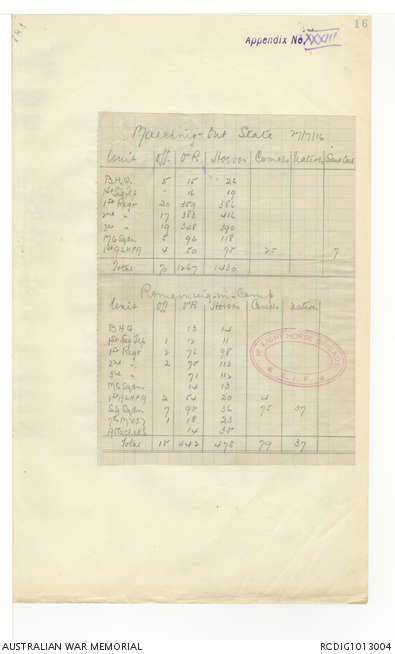 16
Appendix No. XXXIII
Marching-Out State 27/7/16
Unit Off. O'R Horses Camels Natives
B.H.Q. 5 15 26
1st Sig 19
1st Regt 20 359 386
2nd " 17 383 416
3rd " 19 348 390
M G Sqdn 5 96 118
4 50 95 25 7
Total 70 1267 1450
Remaining-in-Camp
Unit Off O'R Horses Camels Natives
B H Q 13 14
1st Sig 1 12 11
1st Regt 2 76 98
2nd " 2 75 112
3rd " 71 112
M G Sqdn 14 13
2 54 20 4
Sqdn 7 95 36 75 37
1 18 23
Attached 14 35
Total 15 442 475 79 37
LIGHT HORSE
A. I. F.
AUSTRALIAN WAR MEMORIAL
RCDIG1013004